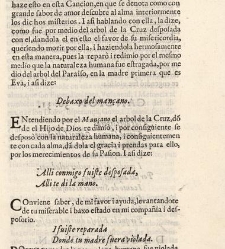 haze esto en esta Cancion, en que se denota como con
grande sabor de amor descubre al alma interiormente
los dichos misterios. I asi hablando con ella, la dize,
como fue por medio del arbol de la Cruz desposada
con el, dandola el en ella el favor de su misericordia,
queriendo morir por ella: i haziendola hermosamente
en esta manera, pues la reparó i redimio por el mesmo
medio que la naturaleza humana fue estragada, por me
dio del arbol del Paraíso, en la madre primera que es
Eva, i asi dize:
Debaxo del mançano.
ENtendiendo por el Mançano el arbol de la Cruz, dó
de el Hijo de Dios redimio, i por consiguiente se
desposó con la naturaleza humana, i consiguientemen
te con cada alma, dádola el gracia i prendas para ello,
por los merecimientos de su Pasion. I asi dize:
Alli conmigo fuiste desposada,
Alli te di la mano.
COnviene saber, de mi favor i ayuda, levantandote
de tu miserable i baxo estado en mi compañia i des-
posorio.
I fuiste reparada
Donde tu madre fuera violada.